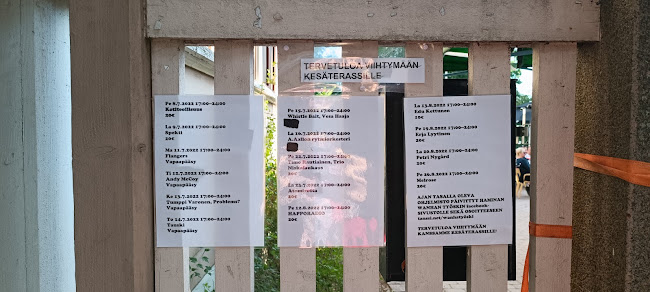 TERVETULOA VIIHTYMÄÄN
KESÄTERASSILLE!
Pe 8.7.2022 17:00-24:00
Kotiteollisuus
20€
La 9.7.2022 17:00-24:00
Spekti
20€
Ma 11.7.2022 17:00-24:00
Flangers
Vapaapääsy
Ti 12.7.2022 17:00-24:00
Andy McCoy
Vapaapääsy
Ke 13.7.2022 17:00-24:00
Tumppi Varonen, Problems?
Vapaapääsy
To 14.7.2022 17:00-24:00
Tanski
Vapaapääsy
Pe 15.7.2022 17:00-24:00
Whistle Bait, Vesa Haaja
La 16.7.2022 17:00-24:00
A.Aallon rytmiorkesteri
Pe 22.7.2022 17:00-24:00
Timo Rautiainen, Trio
Niskalaukaus
20€
La 23.7.2022 17:00-24:00
20€
Pe 12.8.2022 17:00-24:00
HAPPORADIO
20€
La 13.8.2022 17:00-24:00
Edu Kettunen
10€
Pe 19.8.2022 17:00-24:00
Arja Lyytinen
20€
La 20.8.2022 17:00-24:00
Petri Nygård
20€
Pe 26.8.2022 17:00-24:00
Melrose
20€
AJAN TASALLA OLEVA
OHJELMISTO PÄIVITTYY HAMINAN
WANHAN TYÖSKIN facebook-
SIVUSTOLLE SEKÄ OSOITTEESEEN
TERVETULOA VIIHTYMÄÄN
KANSSAMME KESÄTERASSILLE!